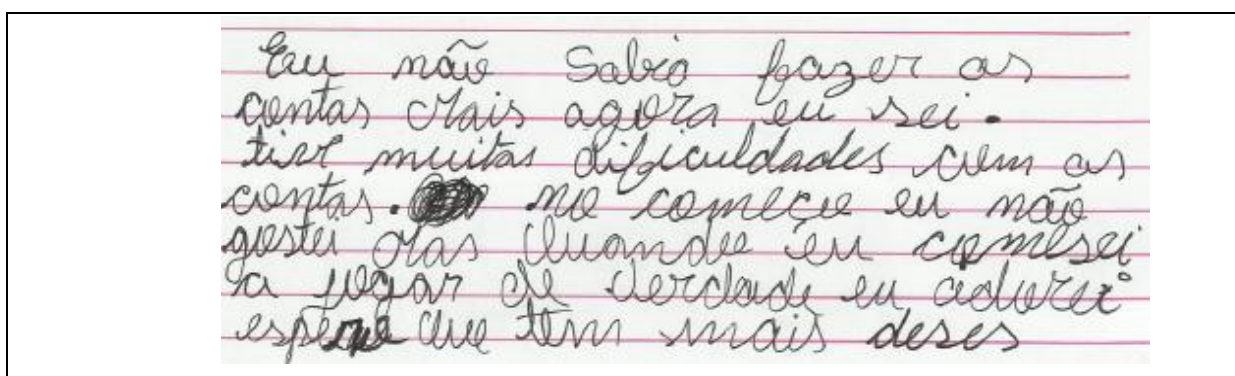 Eu não Sabio fazer as
contas Mais agora eu sei.
tive muitas dificuldades com as
contas. no começo eu não
gostei Mas Quando eu comesei
a jogar de Verdade eu adorei
espero Que tem mais deses